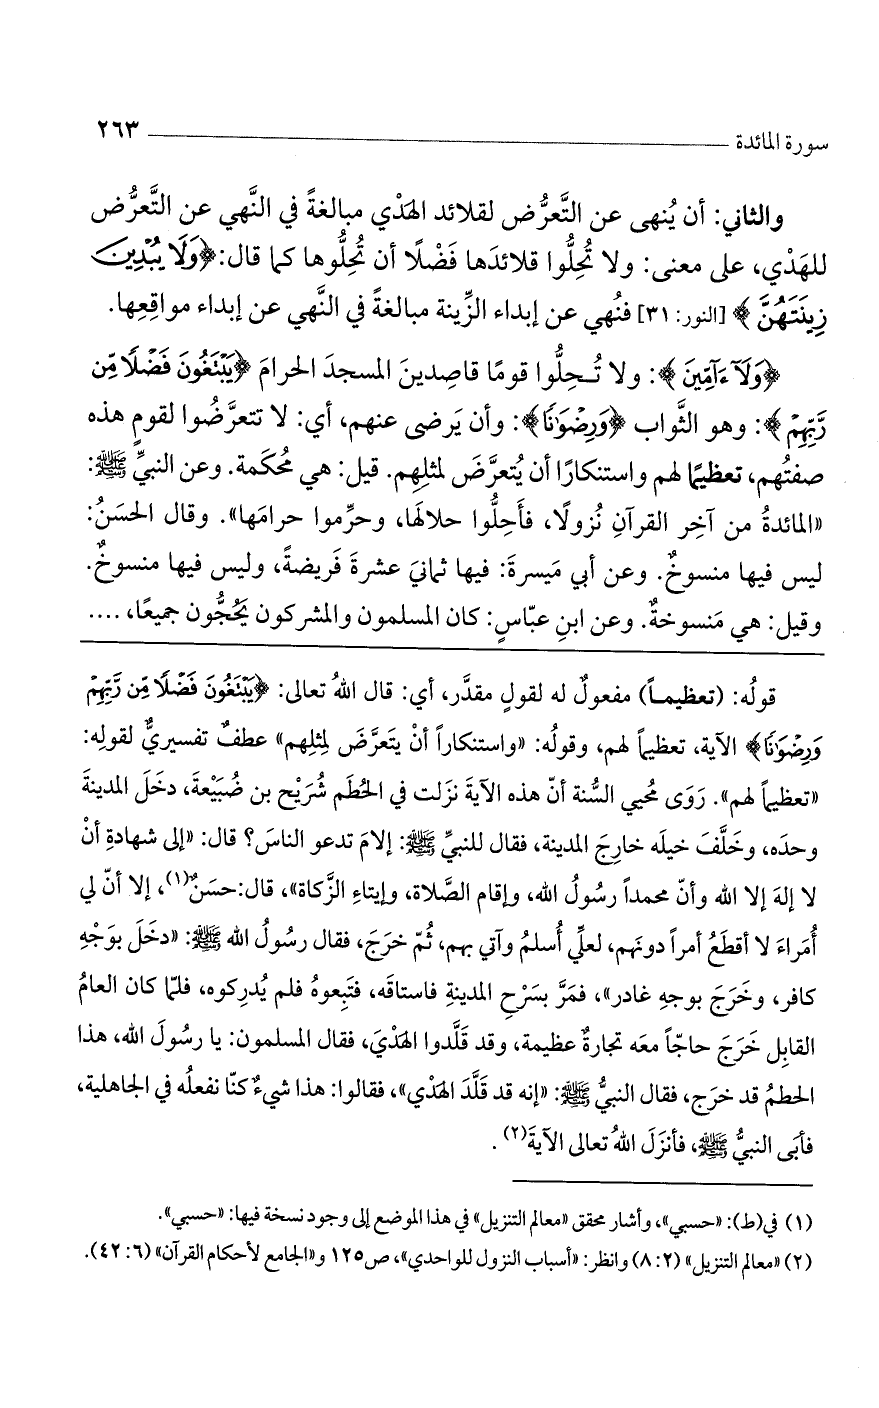 سورة المائدة ٢٦٣
والثاني: أن يُنهى عن التَّعرُّض لقلائد الهَدْي مبالغةً في النَّهي عن التَّعرُّض
للهَدْي، على معنى: ولا تُحِلُّوا قلائدَها فَضْلًا أن تُحِلُّوها كما قال: ﴿وَلَا يُبْدِينَ
زِينَتَهُنَّ﴾ [النور: ٣١] فنُهي عن إبداء الزِّينة مبالغةً في النَّهي عن إبداء مواقِعِها.
﴿وَلَآ ءَآمِّينَ﴾: ولا تُـحِلُّوا قومًا قاصِدينَ المسجدَ الحرامَ ﴿يَبْتَغُونَ فَضْلًا مِّن
رَّبِّهِمْ﴾: وهو الثَّواب ﴿وَرِضْوَٰنًا﴾: وأن يَرضى عنهم، أي: لا تتعرَّضُوا لقومٍ هذه
صفتُهم، تعظيمًا لهم واستنكارًا أن يُتعرَّضَ لمثلِهم. قيل: هي مُحكَمة. وعن النبيِّ ﷺ:
«المائدةُ من آخِر القرآنِ نُزولًا، فأَحِلُّوا حلالَها، وحرِّموا حرامَها». وقال الحَسَنُ:
ليس فيها منسوخٌ. وعن أبي مَيسرةَ: فيها ثمانيَ عشرةَ فَريضةً، وليس فيها منسوخٌ.
وقيل: هي مَنسوخةٌ. وعن ابنِ عبّاسٍ: كان المسلمون والمشركون يَحُجُّون جميعًا، ....
قولُه: (تعظيمـاً) مفعولٌ له لقولٍ مقدَّر، أي: قال اللهُ تعالى: ﴿يَبْتَغُونَ فَضْلًا مِّن رَّبِّهِمْ
وَرِضْوَٰنًا﴾ الآية، تعظيماً لهم، وقولُه: «واستنكاراً أنْ يتَعرَّضَ لمِثلِهم» عطفٌ تفسيريٌّ لقولِه:
«تعظيماً لهم». رَوَى مُحيي السُّنة أنّ هذه الآيةَ نزَلت في الحُطَم شُرَيْح بن ضُبَيْعةَ، دخَلَ المدينةَ
وحدَه، وخَلَّفَ خيلَه خارِجَ المدينة، فقال للنبيِّ ﷺ: إلامَ تدعو الناسَ؟ قال: «إلى شهادةِ أنْ
لا إلهَ إلا الله وأنّ محمداً رسُولُ الله، وإقام الصَّلاة، وإيتاءِ الزَّكاة»، قال:حسَنٌ(١)، إلا أنّ لي
أُمَراءَ لا أقطَعُ أمراً دونَهم، لعلِّي أُسلمُ وآتي بهم، ثُمّ خرَجَ، فقال رسُولُ الله ﷺ: «دخَلَ بوَجْهِ
كافر، وخَرَجَ بوجهِ غادر»، فمَرَّ بسَرْحِ المدينةِ فاستاقَه، فتَبِعوهُ فلم يُدرِكوه، فلمّا كان العامُ
القابِل خَرَجَ حاجّاً معَه تجارةٌ عظيمة، وقد قَلَّدوا الهَدْيَ، فقال المسلمون: يا رسُولَ الله، هذا
الحطمُ قد خرَج، فقال النبيُّ ﷺ: «إنه قد قَلَّدَ الهَدْي»، فقالوا: هذا شيءٌ كنّا نفعلُه في الجاهلية،
فأبَى النبيُّ ﷺ، فأنزَلَ اللهُ تعالى الآيةَ(٢).
(١) في(ط): «حسبي»، وأشار محقق «معالم التنزيل» في هذا الموضع إلى وجود نسخة فيها: «حسبي».
(٢) «معالم التنزيل» (٢: ٨) وانظر: «أسباب النزول للواحدي»، ص١٢٥ و«الجامع لأحكام القرآن» (٦: ٤٢).